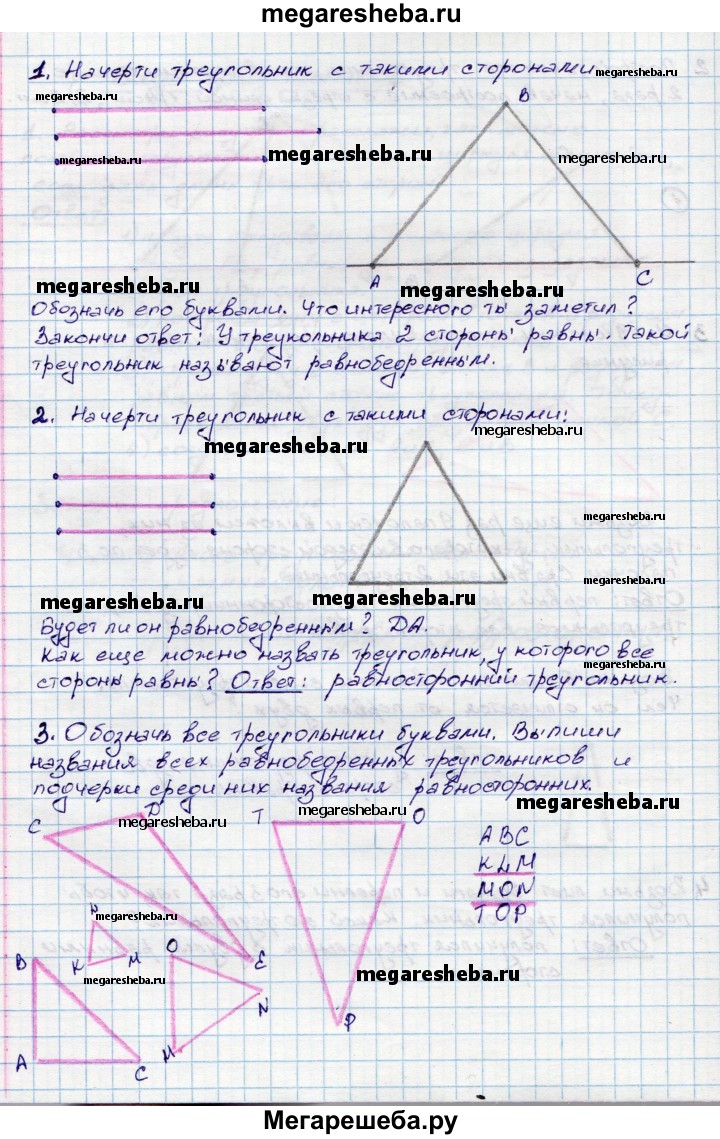 megaresheba.ru
1. Начерти треугольник с такими сторонами
megaresheba.ru
B
megaresheba.ru
megaresheba.ru
megaresheba.ru
A
C
megaresheba.ru
megaresheba.ru
Обозначь его буквами. Что интересного ты заметил?
Закончи ответ: У треукольника 2 стороны равны. Такой
треугольник называют равнобедренным.
2. Начерти треугольник с такими сторонами:
megaresheba.ru
megaresheba.ru
megaresheba.ru
megaresheba.ru
megaresheba.ru
Будет ли он равнобедренным? ДА.
Как еще можно назвать треугольник, у которого все
megaresheba.ru
стороны равны? Ответ: равносторонний треугольник.
3. Обозначь все треугольники буквами. Выпиши
названия всех равнобедренных треугольников и
подчерки среди них названия равносторонних.
megaresheba.ru
C
D
megaresheba.ru
T
megaresheba.ru
O
ABC
KLM
MON
TOP
megaresheba.ru
B
K
M
O
E
megaresheba.ru
megaresheba.ru
N
P
A
C
M
megaresheba.ru
megaresheba.ru
Мегарешеба.ру